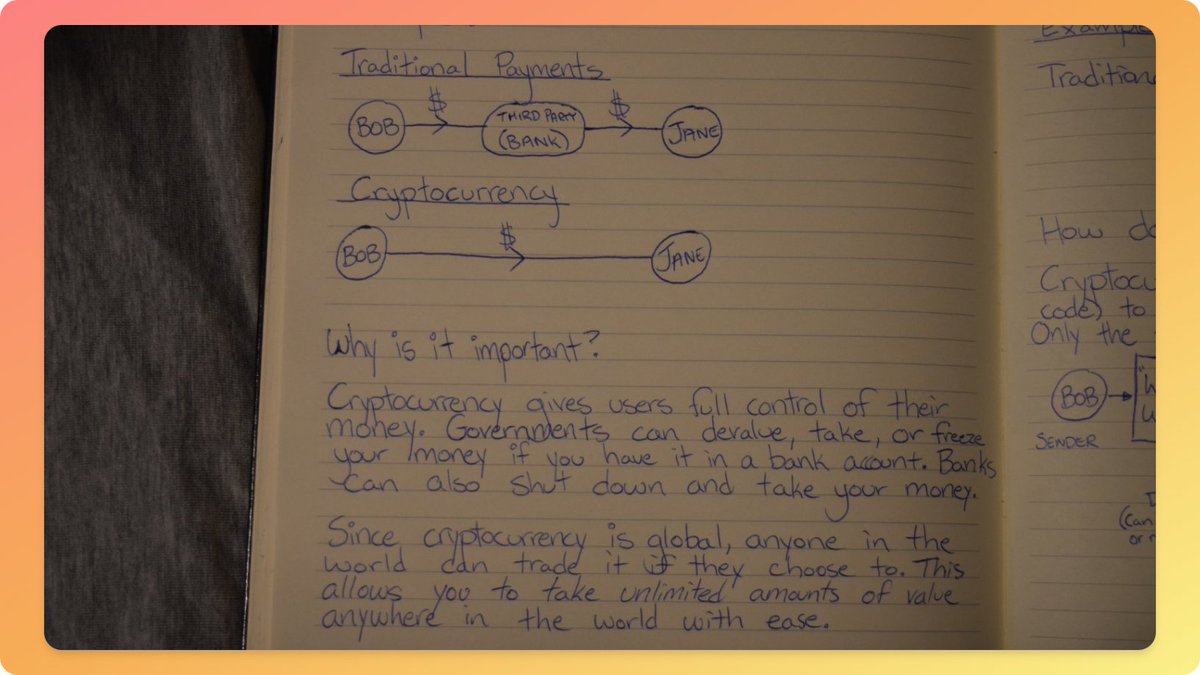 Traditional Payments
$ $
BOB THIRD PARTY (BANK) JANE
Cryptocurrency
$
BOB JANE
Why is it important?
Cryptocurrency gives users full control of their
money. Governments can devalue, take, or freeze
your money if you have it in a bank account. Banks
can also shut down and take your money.
Since cryptocurrency is global, anyone in the
world can trade it if they choose to. This
allows you to take unlimited amounts of value
anywhere in the world with ease.
Tradition
How do
Cryptocu
code) to
Only the
BOB
SENDER
(can